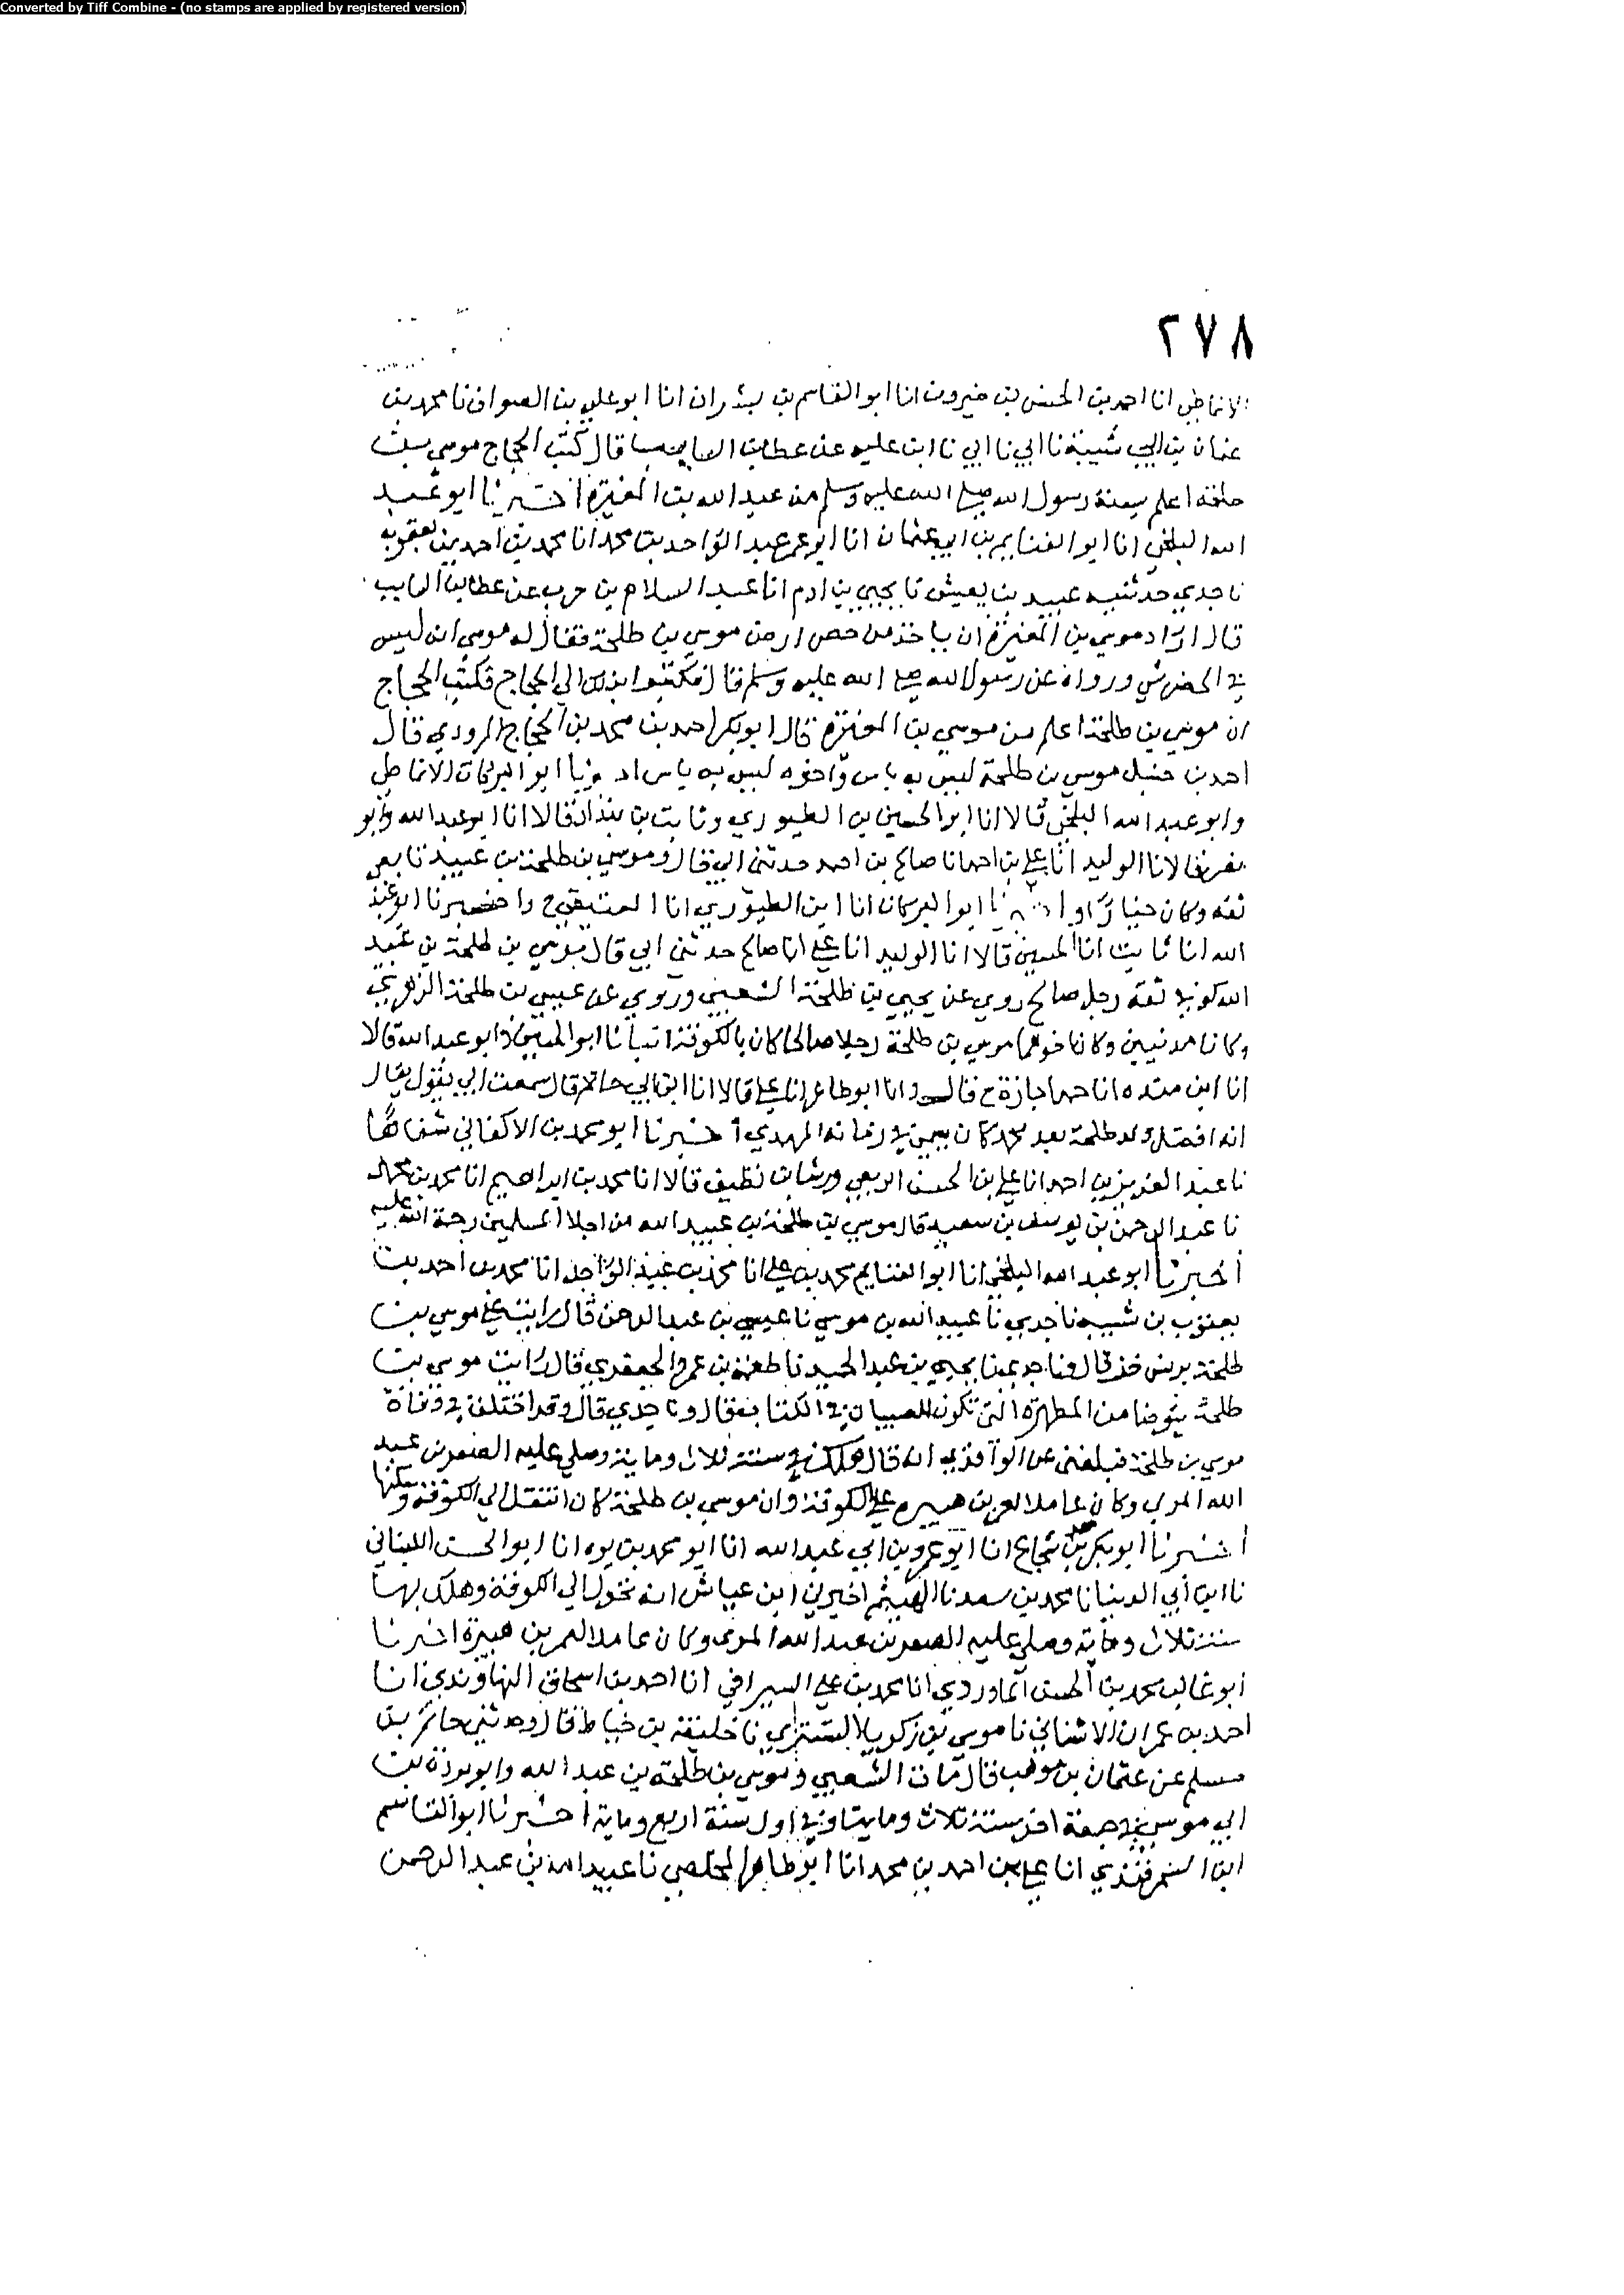 Converted by Tiff Combine - (no stamps are applied by registered version)
٢٧٨
الانماطي انا احمد بن الحسن بن خيرون انا ابو القاسم بن بشران انا ابو علي بن الصواف نا محمد بن
عثمان بن ابي شيبة نا ابي نا ابي نا ابن عليه عن عطا بن السايب قال كتب الحجاج موسي بن
طلحة اعلم بسنة رسول الله صلي الله عليه وسلم من عبد الله بن المغيرة اخبرنا ابو عبد
الله البلخي انا ابو الغنايم بن ابي عثمان انا ابو عمر عبد الواحد بن محمد انا محمد بن احمد بن يعقوب
نا جدي حدثنيه عبيد بن يعيش نا يحيي بن ادم انا عبد السلام بن حرب عن عطا بن السايب
قال اراد موسي بن المغيرة ان ياخذ من خضر ارض موسي بن طلحة فقال له موسي ان ليس
في الخضر شي ورواه عن رسول الله صلي الله عليه وسلم قال فكتبوا بذلك الي الحجاج فكتب الحجاج
ان موسي بن طلحة اعلم من موسي بن المغيرة قال ابو بكر احمد بن محمد بن الحجاج المروذي قال
احمد بن حنبل موسي بن طلحة ليس به باس واخوه ليس به باس ابو البركات الانماطي
وابو عبد الله البلخي قالا انا ابو الحسين بن الطيوري وثابت بن بندار قالا انا ابو عبد الله وابو
نصر قالا نا الوليد انا علي بن احمد انا صالح بن احمد حدثني ابي قال وموسي بن طلحة بن عبيد تابعي
ثقه وكان خيارا ابو البركات انا ابن الطيوري انا العتيقي ح واخبرنا ابو عبد
الله انا ثابت انا الحسين قالا انا الوليد انا علي انا صالح حدثني ابي قال موسي بن طلحة بن عبيد
الله كوفي ثقه رجل صالح روي عن يحيي بن طلحة الشعبي وروي عن عيسي بن طلحة الزهري
وكانا مدنيين وكان اخوهما موسي بن طلحة رجلا صالحا كان بالكوفة انبانا ابو الحسين وابو عبد الله قالا
انا ابن منده انا حمد اجازة ح قال وانا ابو طاهر انا علي قالا انا ابن ابي حاتم قال سمعت ابي يقول يقال
انه افضل ولد طلحة بعد محمد كان يسمي في زمانه المهدي اخبرنا ابو محمد بن الاكفاني شفاها
نا عبد العزيز بن احمد انا علي بن الحسن الربعي ورشا بن نظيف قالا انا محمد بن ابراهيم انا محمد بن محمد
نا عبد الرحمن بن يوسف بن سعيد قال موسي بن طلحة بن عبيد الله من اجلا المسلمين رحمة الله عليه
اخبرنا ابو عبد الله البلخي انا ابو الغنايم محمد بن علي انا محمد بن عبد الواحد انا محمد بن احمد بن
يعقوب بن شيبه نا جدي نا عبيد الله بن موسي نا عيسي بن عبد الرحمن قال رايت علي موسي بن
طلحة برنس خز قال ونا جدي نا يحيي بن عبد الحميد نا طعمة بن عمرو الجعفري قال رايت موسي بن
طلحة يتوضا من المطهرة التي تكون للصبيان في الكتاب فقال ونا جدي قال وقد اختلف في وفاة
موسي بن طلحة فبلغني عن الواقدي انه قال هلك في سنة ثلاث وماية وصلي عليه الصقر بن عبد
الله المري وكان عاملا لعمر بن هبيرة علي الكوفة وان موسي بن طلحة كان انتقل الي الكوفة وسكنها
اخبرنا ابو بكر محمد بن شجاع انا ابو عمرو بن ابي عبد الله انا ابو محمد بن يوه انا ابو الحسن اللبناني
نا ابن ابي الدنيا نا محمد بن سعد نا الهيثم اخبرني ابن عياش انه تحول الي الكوفة وهلك بها
سنة ثلاث وماية وصلي عليه الصقر بن عبد الله المري وكان عاملا لعمر بن هبيرة اخبرنا
ابو غالب محمد بن الحسن الماوردي انا محمد بن علي السيرافي انا احمد بن اسحاق النهاوندي انا
احمد بن عمران الاشناني نا موسي بن زكريا التستري نا خليفة بن خياط قال وحدثني حاتم بن
مسلم عن عثمان بن موهب قال مات الشعبي وموسي بن طلحة بن عبد الله وابو بردة بن
ابي موسي في جمعة اخر سنة ثلاث وماية او في اول سنة اربع وماية اخبرنا ابو القاسم
ابن السمرقندي انا علي بن احمد بن محمد انا ابو طاهر المخلصي نا عبيد الله بن عبد الرحمن